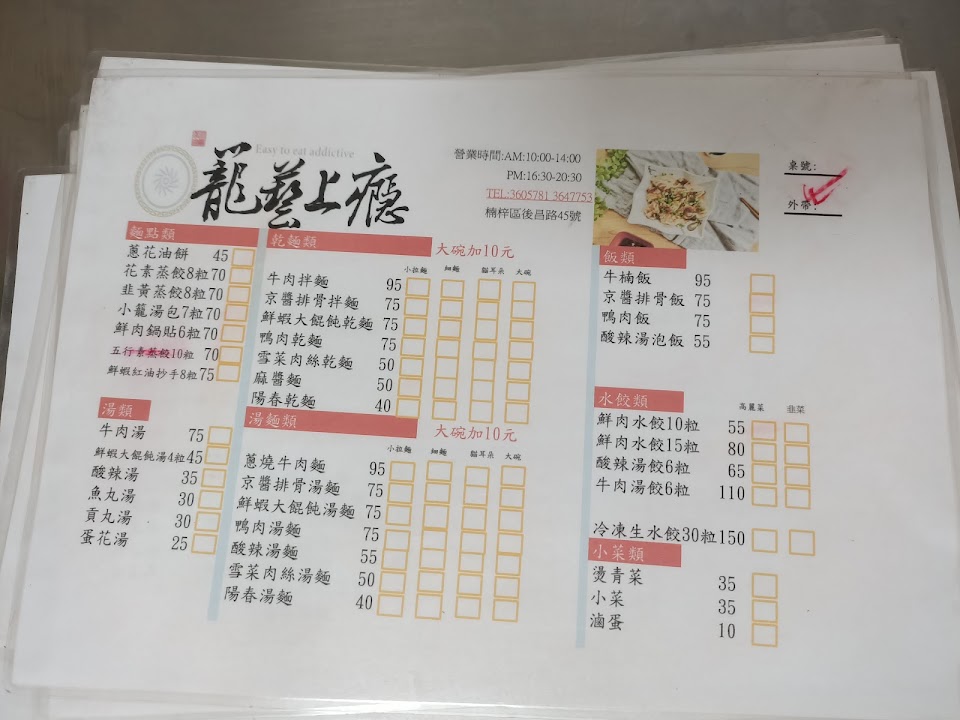 Easy to eat addictive
龍藝上癮
營業時間:AM:10:00-14:00
PM:16:30-20:30
TEL:3605781 3647753
楠梓區後昌路45號
桌號:
外帶:
麵點類
蔥花油餅 45
花素蒸餃8粒70
韭黃蒸餃8粒70
小籠湯包7粒70
鮮肉鍋貼6粒70
五行素蒸餃10粒 70
鮮蝦紅油抄手8粒75
湯類
牛肉湯 75
鮮蝦大餛飩湯4粒45
酸辣湯 35
魚丸湯 30
貢丸湯 30
蛋花湯 25
乾麵類 大碗加10元
小拉麵 細麵 貓耳朵 大碗
牛肉拌麵 95
京醬排骨拌麵 75
鮮蝦大餛飩乾麵 75
鴨肉乾麵 75
雪菜肉絲乾麵 50
麻醬麵 50
陽春乾麵 40
湯麵類 大碗加10元
小拉麵 細麵 貓耳朵 大碗
蔥燒牛肉麵 95
京醬排骨湯麵 75
鮮蝦大餛飩湯麵 75
鴨肉湯麵 75
酸辣湯麵 55
雪菜肉絲湯麵 50
陽春湯麵 40
飯類
牛楠飯 95
京醬排骨飯 75
鴨肉飯 75
酸辣湯泡飯 55
水餃類
高麗菜 韭菜
鮮肉水餃10粒 55
鮮肉水餃15粒 80
酸辣湯餃6粒 65
牛肉湯餃6粒 110
冷凍生水餃30粒150
小菜類
燙青菜 35
小菜 35
滷蛋 10